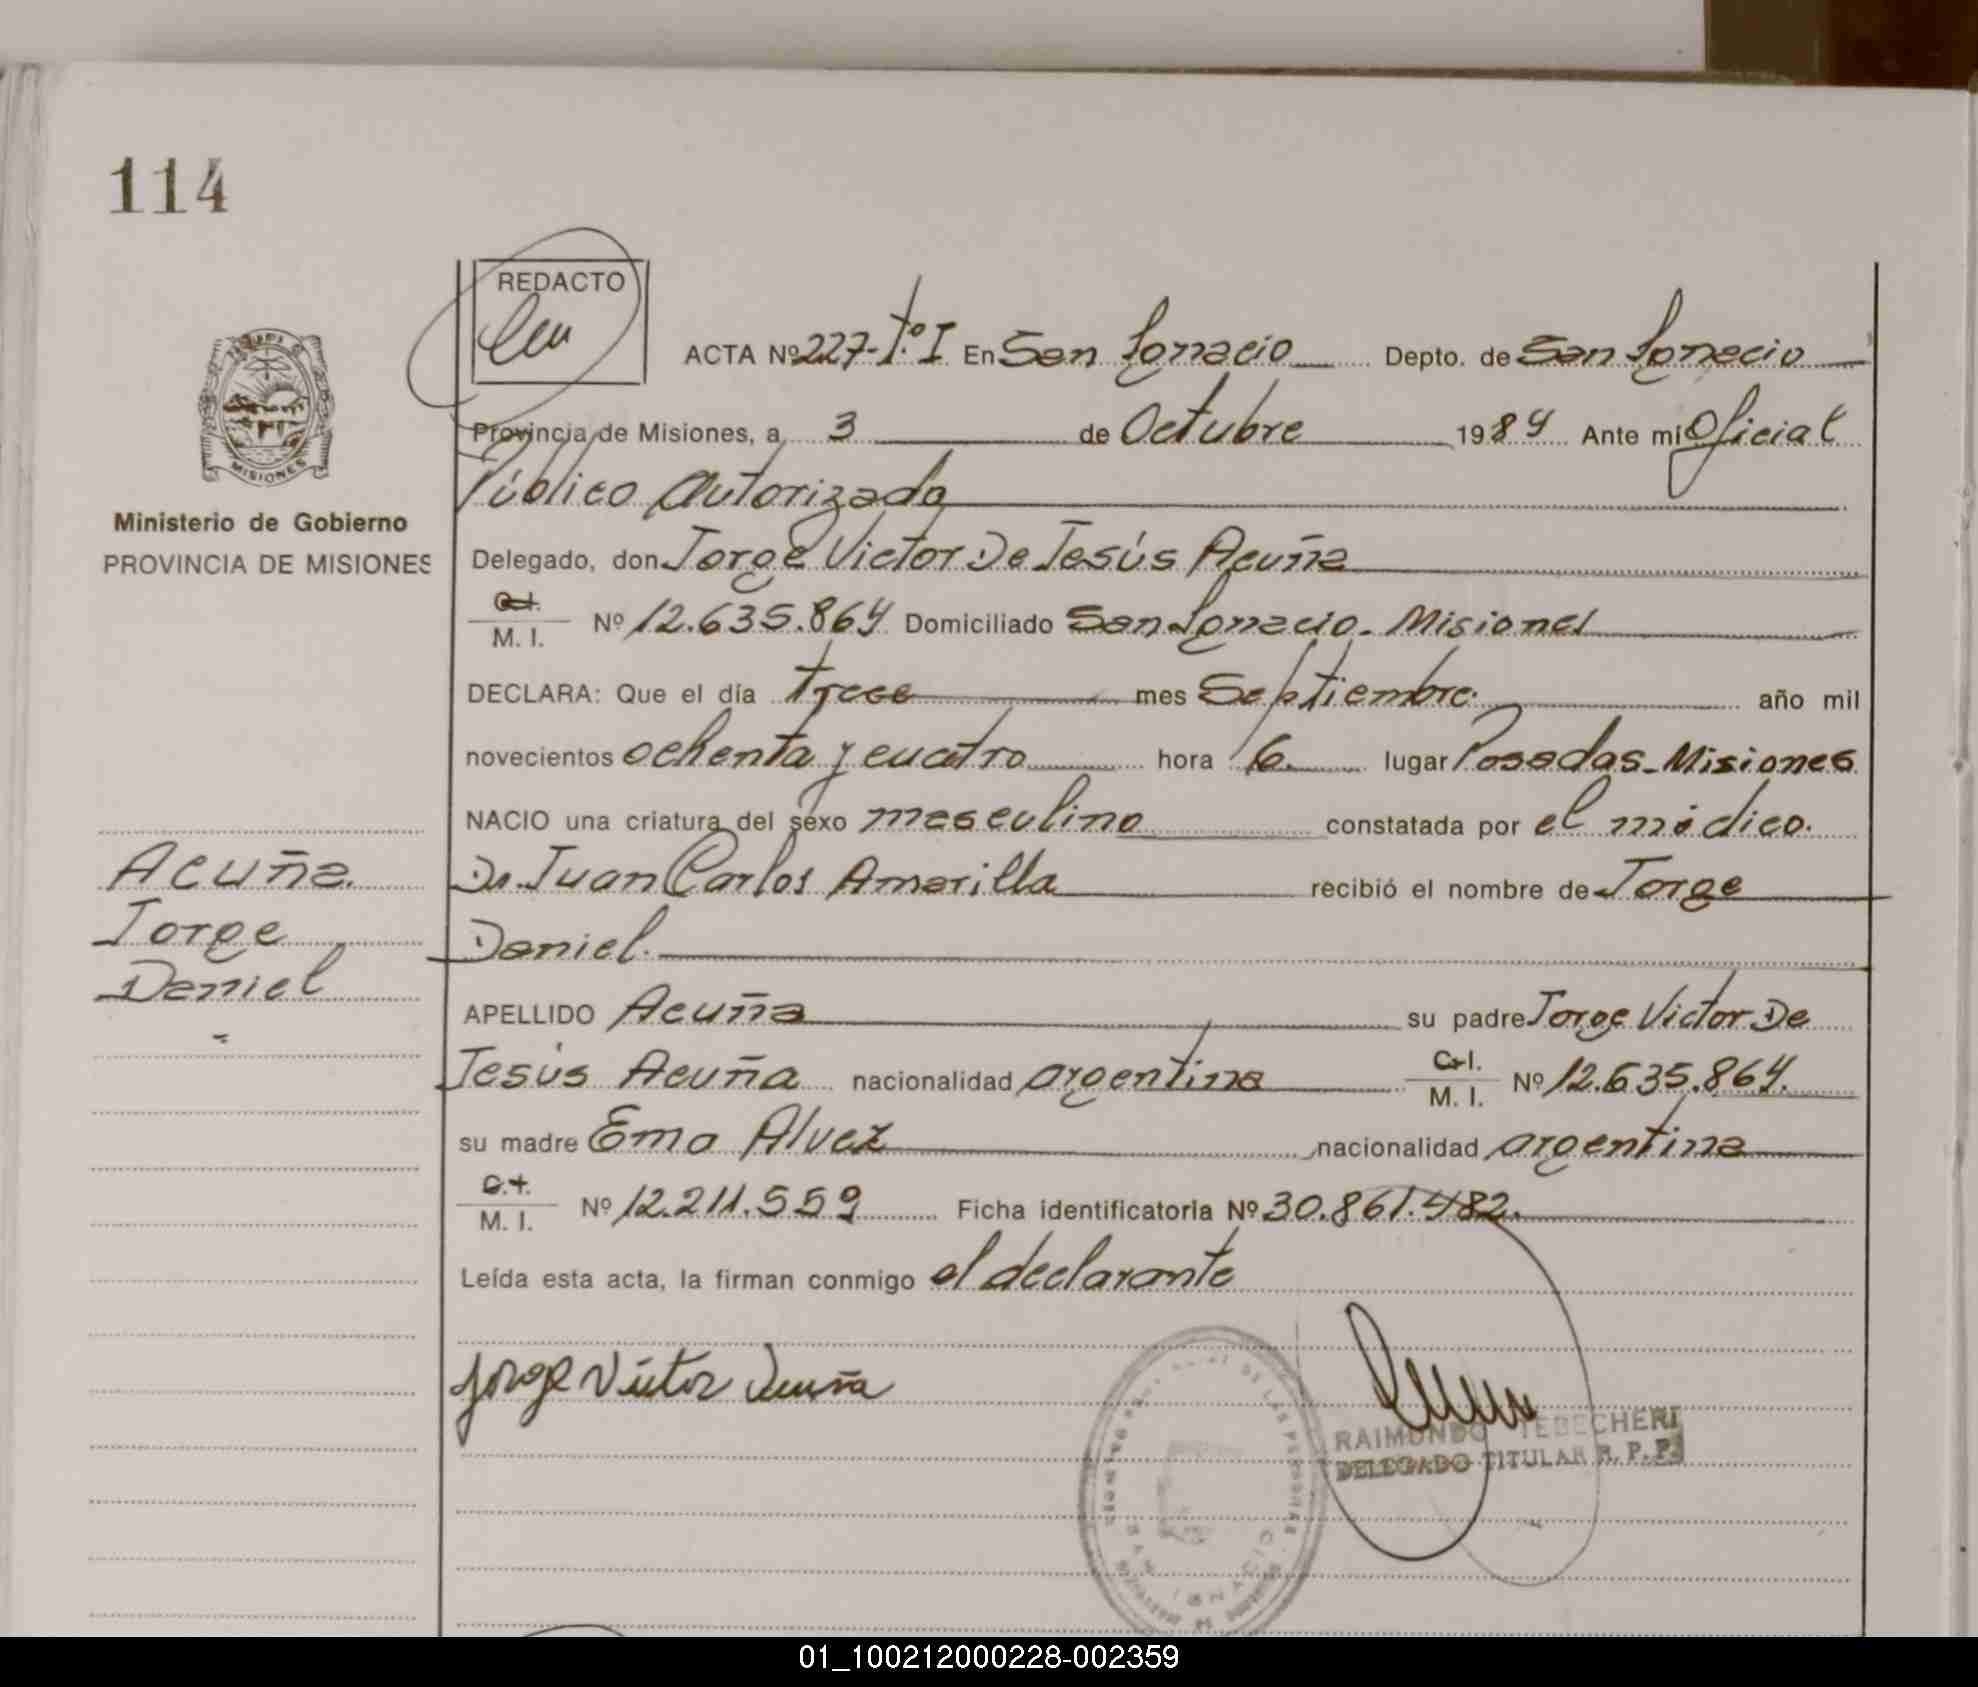 114
REDACTO
ACTA Nº 227-Tº I En San Ignacio Depto. de San Ignacio
Provincia de Misiones, a 3 de Octubre 1984 Ante mi Oficial
Público Autorizado
MISIONES
Ministerio de Gobierno
PROVINCIA DE MISIONES
Delegado, don Jorge Victor De Jesús Acuña
C.I.
M. I. Nº 12.635.864 Domiciliado San Ignacio. Misiones
DECLARA: Que el día trece mes Septiembre año mil
novecientos ochenta y cuatro hora 16. lugar Posadas-Misiones
NACIO una criatura del sexo masculino constatada por el médico.
Dr. Juan Carlos Amarilla recibió el nombre de Jorge
Daniel.
Acuña
Jorge
Daniel
APELLIDO Acuña su padre Jorge Victor De
Jesús Acuña nacionalidad argentina C.I.
M. I. Nº 12.635.864.
su madre Ema Alvez nacionalidad argentina
C.I.
M. I. Nº 12.211.559 Ficha identificatoria Nº 30.861.482.
Leída esta acta, la firman conmigo el declarante
Jorge Victor Acuña
RAIMUNDO TEBECHERI
DELEGADO TITULAR R. P. P.
DE LAS PERSONAS
SAN IGNACIO
01_100212000228-002359